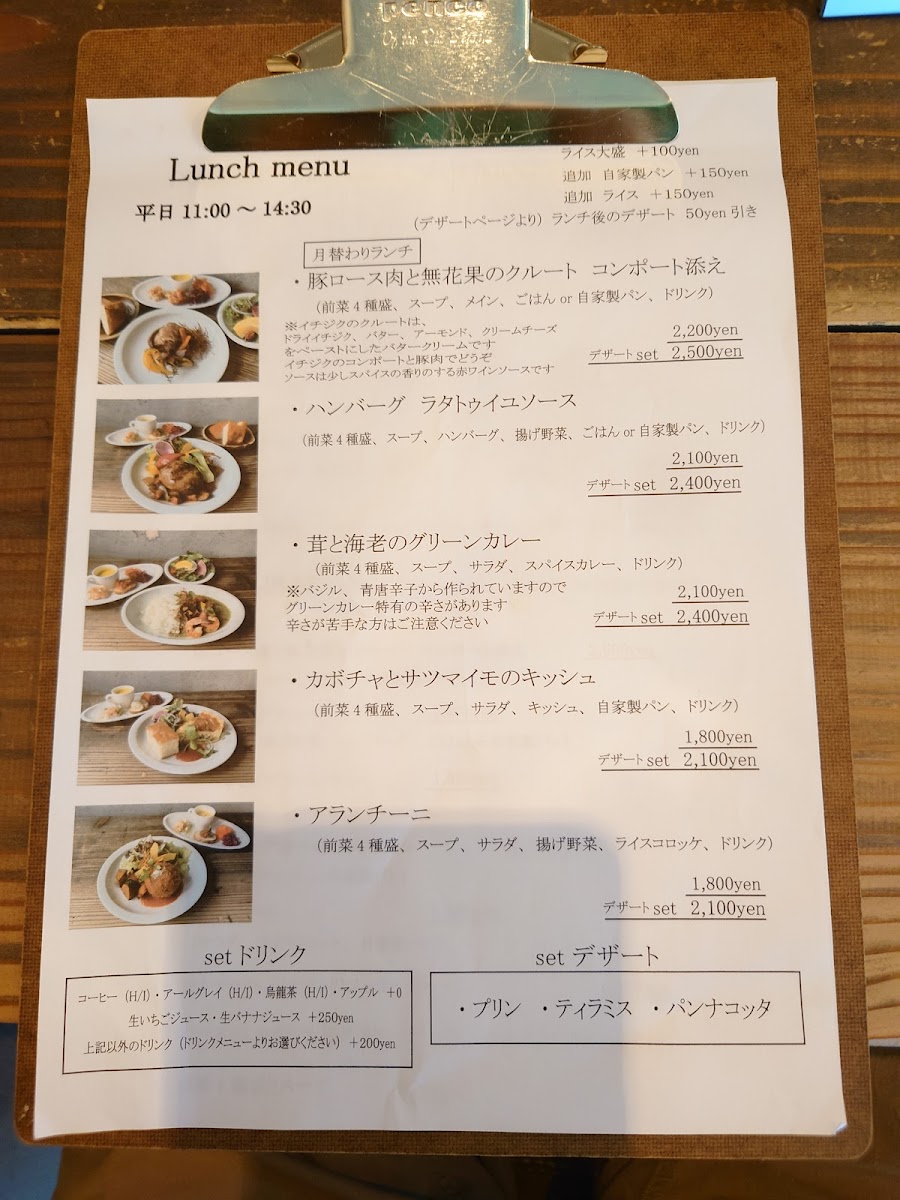 penco
Lunch menu
平日 11:00 ～ 14:30
ライス大盛 ＋100yen
追加 自家製パン ＋150yen
追加 ライス ＋150yen
(デザートページより) ランチ後のデザート 50yen 引き
月替わりランチ
・豚ロース肉と無花果のクルート コンポート添え
（前菜４種盛、スープ、メイン、ごはん or 自家製パン、ドリンク）
※イチジクのクルートは、
ドライイチジク、バター、アーモンド、クリームチーズ
をペーストにしたバタークリームです
イチジクのコンポートと豚肉でどうぞ
ソースは少しスパイスの香りのする赤ワインソースです
2,200yen
デザート set 2,500yen
・ハンバーグ ラタトゥイユソース
（前菜４種盛、スープ、ハンバーグ、揚げ野菜、ごはん or 自家製パン、ドリンク）
2,100yen
デザート set 2,400yen
・茸と海老のグリーンカレー
（前菜４種盛、スープ、サラダ、スパイスカレー、ドリンク）
※バジル、青唐辛子から作られていますので
グリーンカレー特有の辛さがあります
辛さが苦手な方はご注意ください
2,100yen
デザート set 2,400yen
・カボチャとサツマイモのキッシュ
（前菜４種盛、スープ、サラダ、キッシュ、自家製パン、ドリンク）
1,800yen
デザート set 2,100yen
・アランチーニ
（前菜４種盛、スープ、サラダ、揚げ野菜、ライスコロッケ、ドリンク）
1,800yen
デザート set 2,100yen
set ドリンク
コーヒー（H/I）・アールグレイ（H/I）・烏龍茶（H/I）・アップル ＋0
生いちごジュース・生バナナジュース ＋250yen
上記以外のドリンク（ドリンクメニューよりお選びください）＋200yen
set デザート
・プリン ・ティラミス ・パンナコッタ